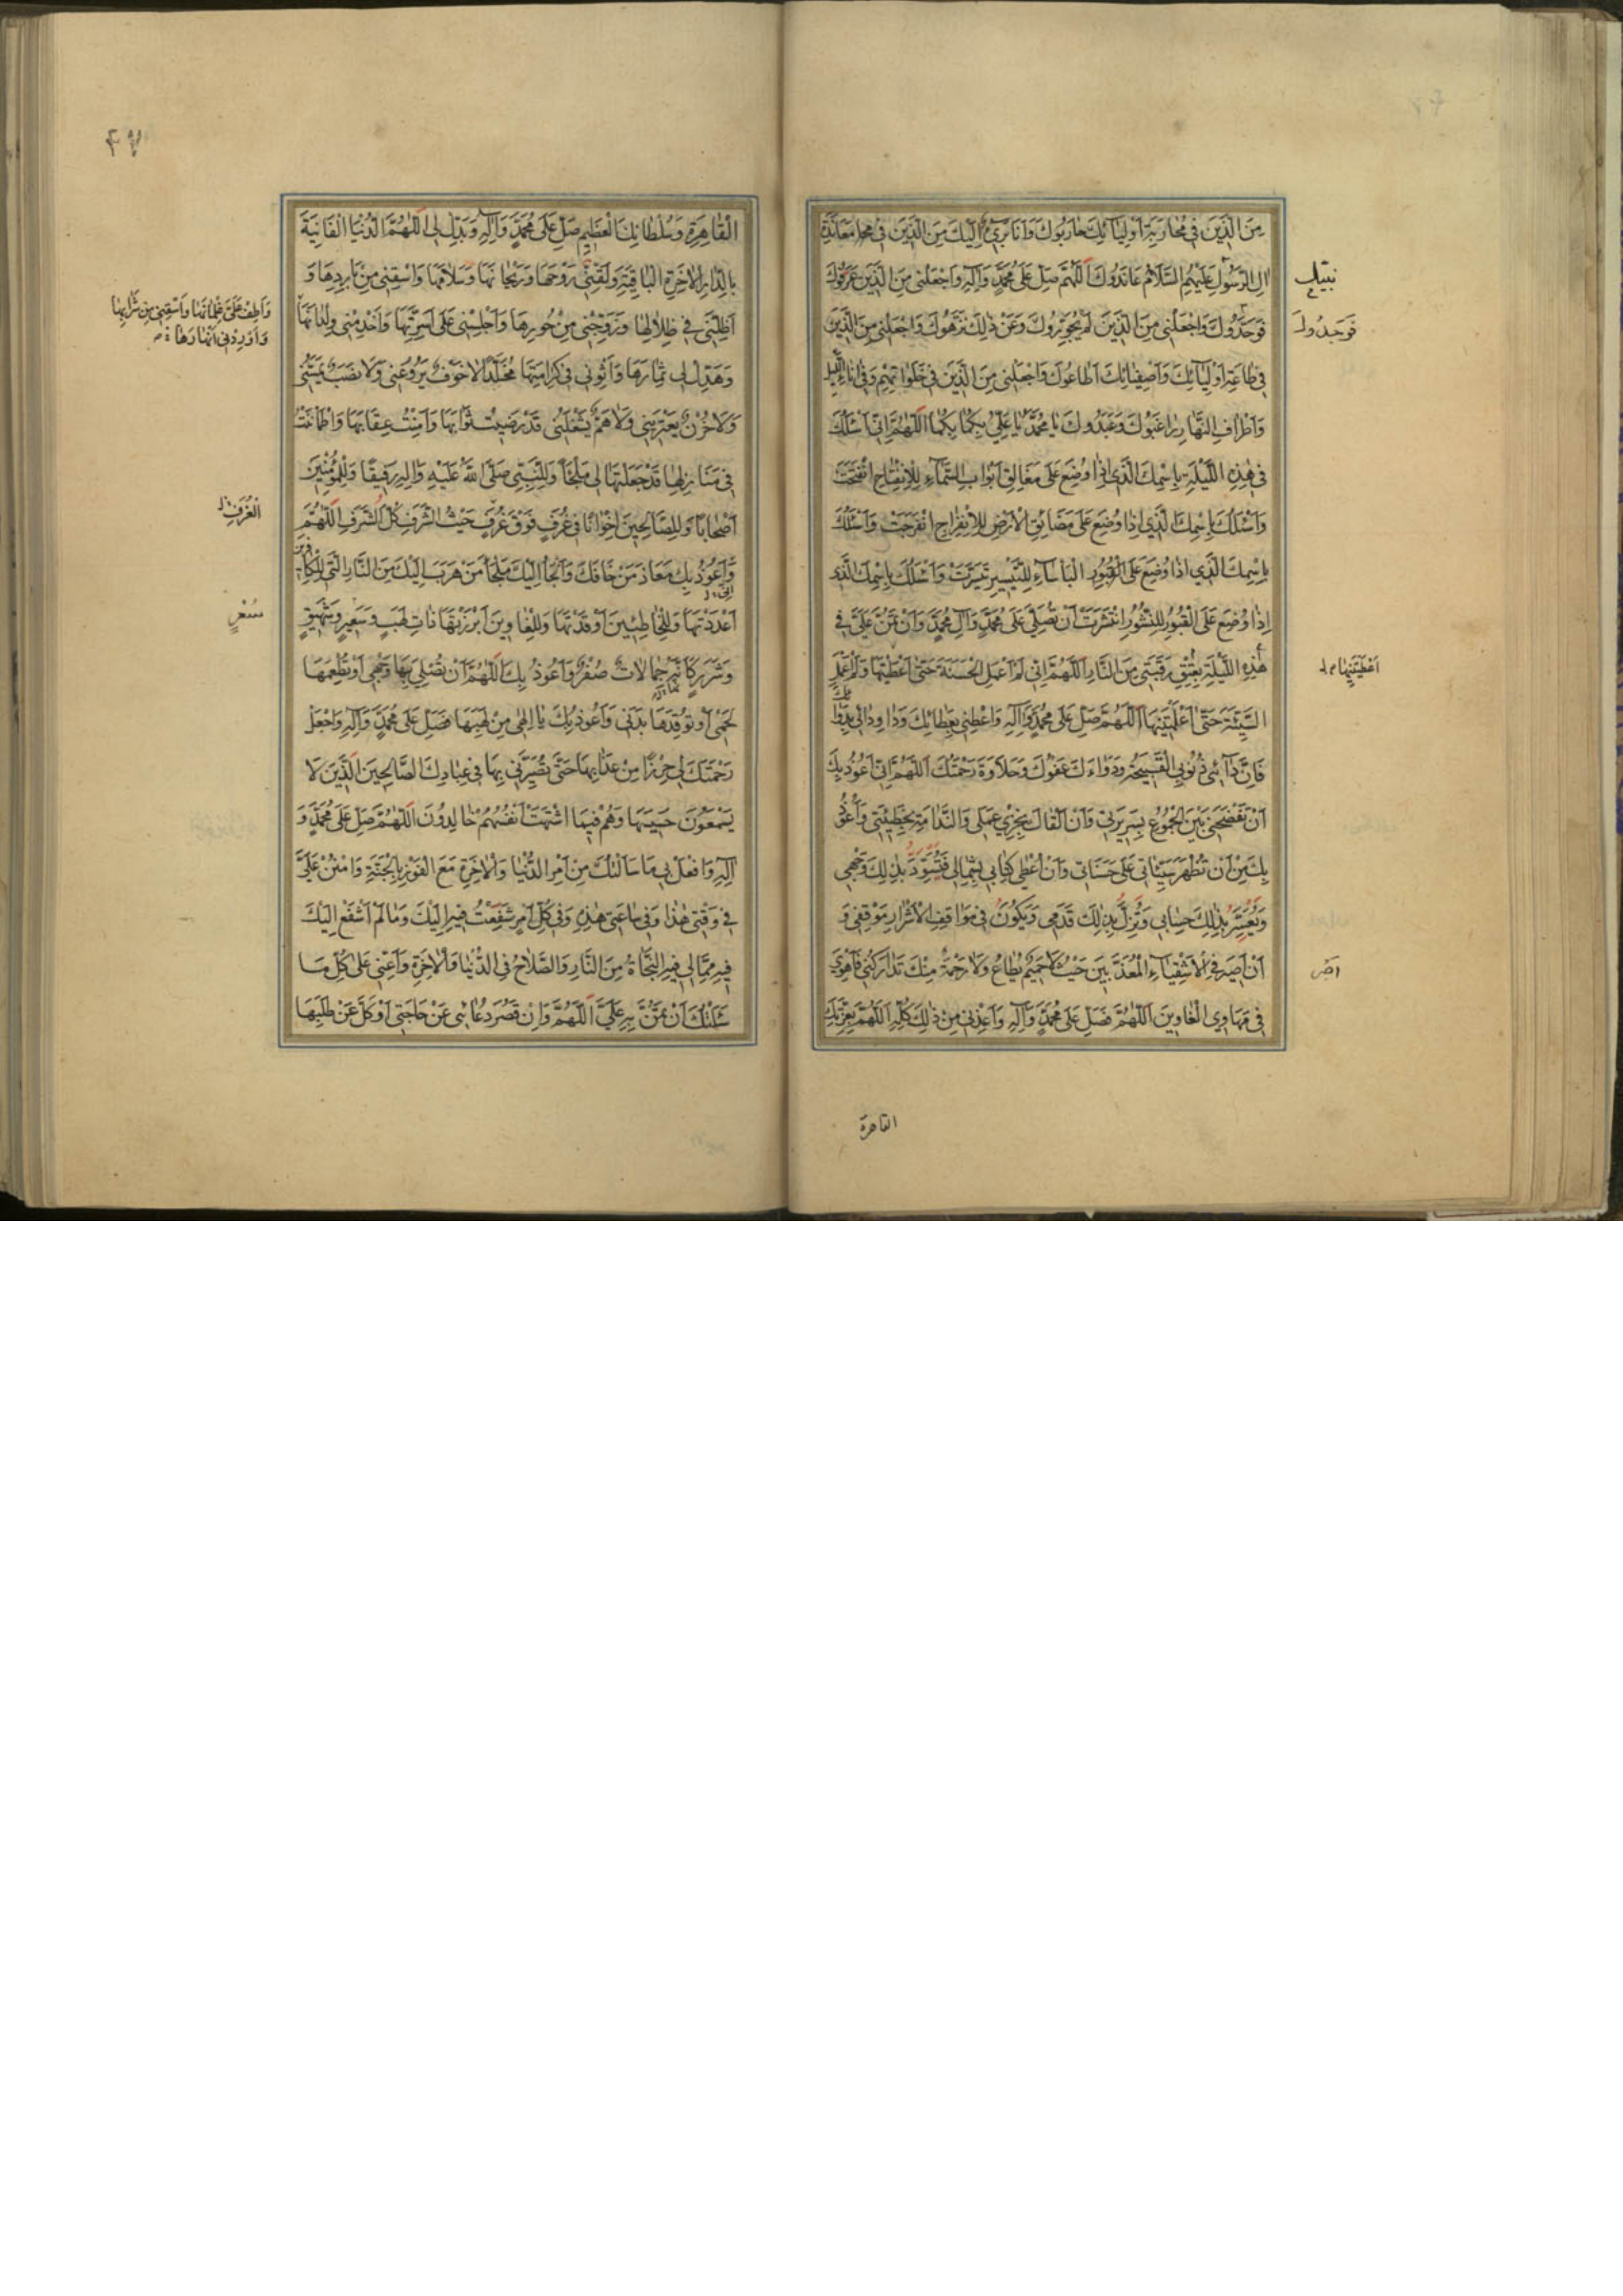 مِنَ الَّذينَ في مُحارَبَةِ اَوْلِيآئِكَ حارَبُوكَ وَاَنَا بَرِيءٌ اِلَيْكَ مِنَ الَّذينَ في مُعانَدَةِ
الِ الرَّسُولِ عَلَيْهِمُ السَّلامُ عانَدُوكَ اَللّهُمَّ صَلِّ عَلى مُحَمَّدٍ وَآلِهِ وَاجْعَلْني مِنَ الَّذينَ عَرَفُوكَ
فَوَحَّدُوكَ وَاجْعَلْني مِنَ الَّذينَ لَمْ يُجَوِّرُوكَ وَعَنْ ذلِكَ نَزَّهُوكَ وَاجْعَلْني مِنَ الَّذينَ
في طاعَةِ اَوْلِيآئِكَ وَاَصْفِيائِكَ اَطاعُوكَ وَاجْعَلْني مِنَ الَّذينَ في خَلَواتِهِمْ وَفي اناءِ اللَّيْلِ
وَاَطْرافِ النَّهارِ راغَبُوكَ وَعَبَدُوكَ يا مُحَمَّدُ يا عَلِيُّ بِكُما بِكُما اَللّهُمَّ اِنّي اَسْئَلُكَ
في هذِهِ اللَّيْلَةِ بِاسْمِكَ الَّذي اِذا وُضِعَ عَلى مَغالِقِ اَبْوابِ السَّمآءِ لِلاِنْفِتاحِ انْفَتَحَتْ
وَاَسْئَلُكَ بِاسْمِكَ الَّذي اِذا وُضِعَ عَلى مَضائِقِ الاَرْضِ لِلاِنْفِراجِ انْفَرَجَتْ وَاَسْئَلُكَ
بِاسْمِكَ الَّذي اِذا وُضِعَ عَلَى الْبَأْساءِ لِلتَّيْسيرِ تَيَسَّرَتْ وَاَسْئَلُكَ بِاسْمِكَ الَّذي
اِذا وُضِعَ عَلَى الْقُبُورِ لِلنُّشُورِ انْتَشَرَتْ اَنْ تُصَلِّيَ عَلى مُحَمَّدٍ وَآلِ مُحَمَّدٍ وَاَنْ تَمُنَّ عَلَيَّ في
هذِهِ اللَّيْلَةِ بِعِتْقِ رَقَبَتي مِنَ النّارِ اَللّهُمَّ اِنّي لَمْ اَعْمَلِ الْحَسَنَةَ حَتّى اَعْطَيْتَها وَلَمْ اَعْمَلِ
السَّيِّئَةَ حَتّى اَعْلَمْتَنيها اَللّهُمَّ صَلِّ عَلى مُحَمَّدٍ وَآلِهِ وَاعْطِني بِعَطائِكَ وَداوِ دائي بِدَوائِكَ
فَاِنَّ دآئي ذُنُوبِيَ الْقَبيحَةُ وَدَواءَكَ عَفْوُكَ وَحَلاوَةُ رَحْمَتِكَ اَللّهُمَّ اِنّي اَعُوذُ بِكَ
اَنْ تَفْضَحَني بَيْنَ الْجُمُوعِ بِسَريرَتي وَاَنْ اَلْقاكَ بِخِزْيِ عَمَلي وَالنَّدامَةِ بِخَطيئَتي وَاَعُوذُ
بِكَ مِنْ اَنْ تُظْهِرَ سَيِّئاتي عَلى حَسَناتي وَاَنْ اُعْطى كِتابي بِشِمالي فَيُسَوَّدَ بِذلِكَ وَجْهي
وَيُعَسَّرَ بِذلِكَ حِسابي وَتَزِلَّ بِذلِكَ قَدَمي وَيَكُونَ في مَواقِفِ الاَشْرارِ مَوْقِفي وَ
اَنْ اَصيرَ فِي الاَشْقِياءِ الْمُعَذَّبينَ حَيْثُ لا حَميمٌ يُطاعُ وَلا رَحْمَةٌ مِنْكَ تَدارَكُني فَاَهْوِيَ
في مَهاوِي الْغاوينَ اَللّهُمَّ فَصَلِّ عَلى مُحَمَّدٍ وَآلِهِ وَاَعِذْني مِنْ ذلِكَ كُلِّهِ اَللّهُمَّ بِعِزَّتِكَ
فَوَحَّدُوكَ
اَعْطَيْتَنيها
القاهرة
٤٧
الْقاهِرَةِ وَسُلْطانِكَ الْعَظيمِ صَلِّ عَلى مُحَمَّدٍ وَآلِهِ وَبَدِّلْ لِي اَللّهُمَّ الدُّنْيَا الْفانِيَةَ
بِالدّارِ الاخِرَةِ الْباقِيَةِ وَلَقِّني رَوْحَها وَرَيْحانَها وَسَلامَها وَاسْقِني مِنْ بارِدِها وَ
اَظِلَّني في ظِلالِها وَزَوِّجْني مِنْ حُورِها وَاَجْلِسْني عَلى اَسِرَّتِها وَاَخْدِمْني وِلْدانَها
وَاَطِفْ عَلَيَّ غِلْمانَها وَاَسْقِني مِنْ شَرابِها
وَاَوْرِدْني اَنْهارَها
وَهَدِّلْ لي ثِمارَها وَاَثْوِني في كَرامَتِها مُخَلَّدًا لا خَوْفٌ يَرُوعُني وَلا نَصَبٌ يَمَسُّني
وَلا حُزْنٌ يَعْتَريني وَلا هَمٌّ يَشْغَلُني قَدْ رَضيتُ ثَوابَها وَاَمِنْتُ عِقابَها وَاطْمَأْنَنْتُ
في مَنازِلِها قَدْ جَعَلْتَها لي مَلْجَأً وَلِلنَّبِيِّ صَلَّى اللّهُ عَلَيْهِ وَآلِهِ رَفيقًا وَلِلْمُؤْمِنينَ
اَصْحابًا وَلِلصّالِحينَ اِخْوانًا في غُرَفٍ فَوْقَ غُرَفٍ حَيْثُ الشَّرَفِ كُلِّ الشَّرَفِ اَللّهُمَّ
الْغُرَفِ
وَاَعُوذُ بِكَ مَعاذَ مَنْ خافَكَ وَاَلْجَأُ اِلَيْكَ مَلْجَأَ مَنْ هَرَبَ اِلَيْكَ مِنَ النّارِ الَّتي لِلْكافِرينَ
اَعْدَدْتَها وَلِلْخاطِئينَ اَوْقَدْتَها وَلِلْغاوينَ اَبْرَزْتَها ذاتِ لَهَبٍ وَسَعيرٍ وَشَهيقٍ
وَشَرَرٍ كَاَنَّهُ جِمالاتٌ صُفْرٌ وَاَعُوذُ بِكَ اَللّهُمَّ اَنْ تُصْلِيَ بِها وَجْهي اَوْ تُطْعِمَها
لَحْمي اَوْ تُوقِدَها بَدَني وَاَعُوذُ بِكَ يا اِلهي مِنْ لَهيبِها فَصَلِّ عَلى مُحَمَّدٍ وَآلِهِ وَاجْعَلْ
رَحْمَتَكَ لي حِرْزًا مِنْ عَذابِها حَتّى تُصَيِّرَني بِها في عِبادِكَ الصّالِحينَ الَّذينَ لا
يَسْمَعُونَ حَسيسَها وَهُمْ فيمَا اشْتَهَتْ اَنْفُسُهُمْ خالِدُونَ اَللّهُمَّ صَلِّ عَلى مُحَمَّدٍ وَ
آلِهِ وَافْعَلْ بي ما سَاَلْتُكَ مِنْ اَمْرِ الدُّنْيا وَالاخِرَةِ مَعَ الْفَوْزِ بِالْجَنَّةِ وَامْنُنْ عَلَيَّ
في وَقْتي هذا وَفي ساعَتي هذِهِ وَفي كُلِّ اَمْرٍ شَفَعْتُ فيهِ اِلَيْكَ وَما لَمْ اَشْفَعْ اِلَيْكَ
فيهِ مِمّا لي فيهِ النَّجاةُ مِنَ النّارِ وَالصَّلاحُ فِي الدُّنْيا وَالاخِرَةِ وَاَعِنّي عَلى كُلِّ ما
سَئَلْتُكَ اَنْ تَمُنَّ بِهِ عَلَيَّ اَللّهُمَّ وَاِنْ قَصُرَ دُعائي عَنْ حاجَتي اَوْ كَلَّ عَنْ طَلَبِها